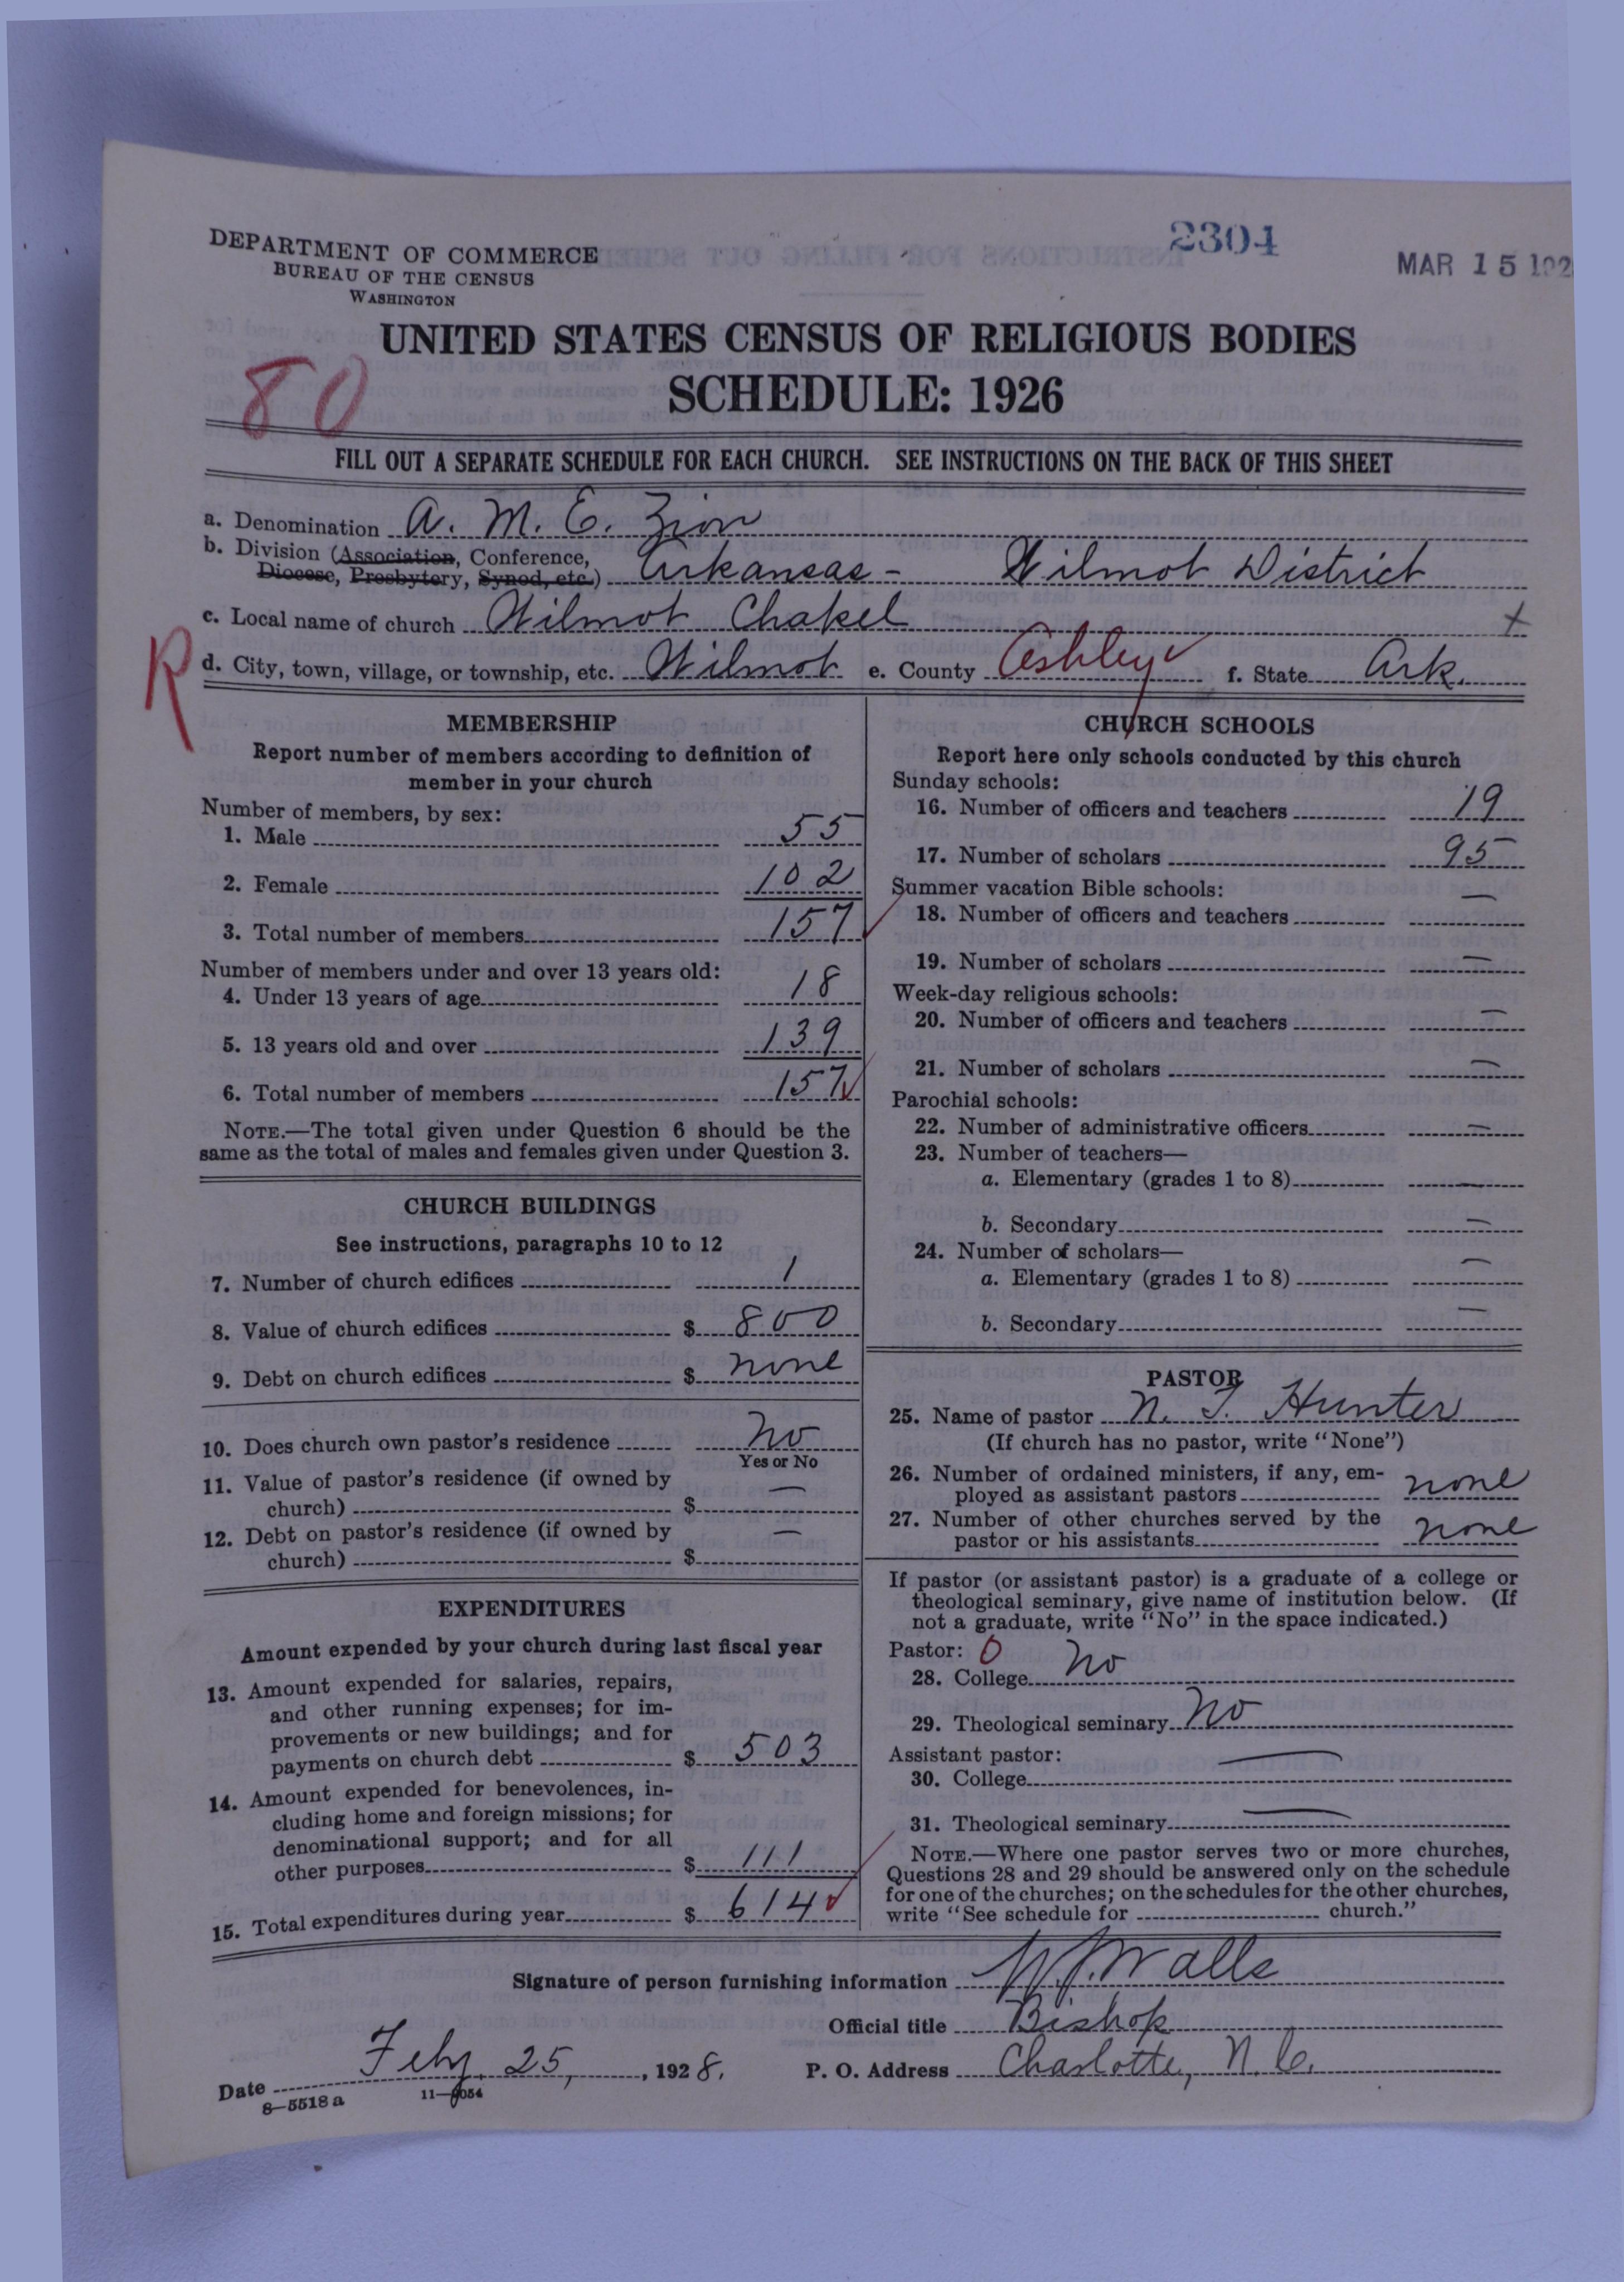 DEPARTMENT OF COMMERCE
BUREAU OF THE CENSUS
WASHINGTON
2304
MAR 15 192
UNITED STATES CENSUS OF RELIGIOUS BODIES
SCHEDULE: 1926
80
FILL OUT A SEPARATE SCHEDULE FOR EACH CHURCH. SEE INSTRUCTIONS ON THE BACK OF THIS SHEET
a. Denomination A. M. E. Zion
b. Division (Association, Conference,
Diocese, Presbytery, Synod, etc.) Arkansas - Wilmot District
c. Local name of church Wilmot Chapel x
R
d. City, town, village, or township, etc. Wilmot e. County Ashley f. State Ark.
MEMBERSHIP
Report number of members according to definition of
member in your church
Number of members, by sex:
1. Male 55
2. Female 102
3. Total number of members 157
Number of members under and over 13 years old:
4. Under 13 years of age 18
5. 13 years old and over 139
6. Total number of members 157
NOTE.—The total given under Question 6 should be the
same as the total of males and females given under Question 3.
CHURCH BUILDINGS
See instructions, paragraphs 10 to 12
7. Number of church edifices 1
8. Value of church edifices $ 800
9. Debt on church edifices $ none
10. Does church own pastor's residence No
Yes or No
11. Value of pastor's residence (if owned by
church) $ —
12. Debt on pastor's residence (if owned by
church) $ —
EXPENDITURES
Amount expended by your church during last fiscal year
13. Amount expended for salaries, repairs,
and other running expenses; for im-
provements or new buildings; and for
payments on church debt $ 503
14. Amount expended for benevolences, in-
cluding home and foreign missions; for
denominational support; and for all
other purposes $ 111
15. Total expenditures during year $ 614
CHURCH SCHOOLS
Report here only schools conducted by this church
Sunday schools:
16. Number of officers and teachers 19
17. Number of scholars 95
Summer vacation Bible schools:
18. Number of officers and teachers —
19. Number of scholars —
Week-day religious schools:
20. Number of officers and teachers —
21. Number of scholars —
Parochial schools:
22. Number of administrative officers —
23. Number of teachers—
a. Elementary (grades 1 to 8) —
b. Secondary —
24. Number of scholars—
a. Elementary (grades 1 to 8) —
b. Secondary —
PASTOR
25. Name of pastor N. T. Hunter
(If church has no pastor, write "None")
26. Number of ordained ministers, if any, em-
ployed as assistant pastors none
27. Number of other churches served by the
pastor or his assistants none
If pastor (or assistant pastor) is a graduate of a college or
theological seminary, give name of institution below. (If
not a graduate, write "No" in the space indicated.)
Pastor: 0
28. College No
29. Theological seminary No
Assistant pastor:
30. College —
31. Theological seminary —
NOTE.—Where one pastor serves two or more churches,
Questions 28 and 29 should be answered only on the schedule
for one of the churches; on the schedules for the other churches,
write "See schedule for church."
Signature of person furnishing information W J Walls
Official title Bishop
Date Feby. 25, , 1928. P. O. Address Charlotte, N. C.
8—5518 a 11—9054